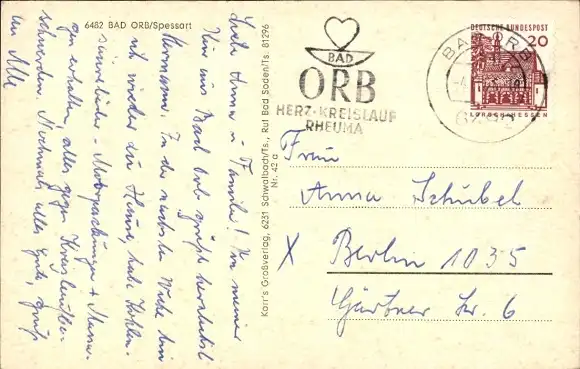 6482 BAD ORB/Spessart
Liebe Anna u. Familie! Von meiner
Kur aus Bad Orb grüßt herzlichst
Hermann. In der nächsten Woche bin
ich wieder zu Hause, habe Kohlen-
säurebäder - Moorpackungen + Massa-
gen erhalten, alles gegen Kreislaufbe-
schwerden. Nochmals alles Gute, Gruß
an Alle
Karr's Großverlag, 6231 Schwalbach/Ts., Ruf Bad Soden/Ts. 81296
Nr. 42 a
BAD
ORB
HERZ-KREISLAUF
RHEUMA
BAD ORB
DEUTSCHE BUNDESPOST
20
LORSCH-HESSEN
6482
Frau
Anna Schubel
X Berlin 1035
Gärtner Str. 6